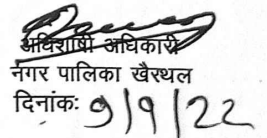 अधिशाषी अधिकारी
नगर पालिका खैरथल
दिनांकः 9/9/22